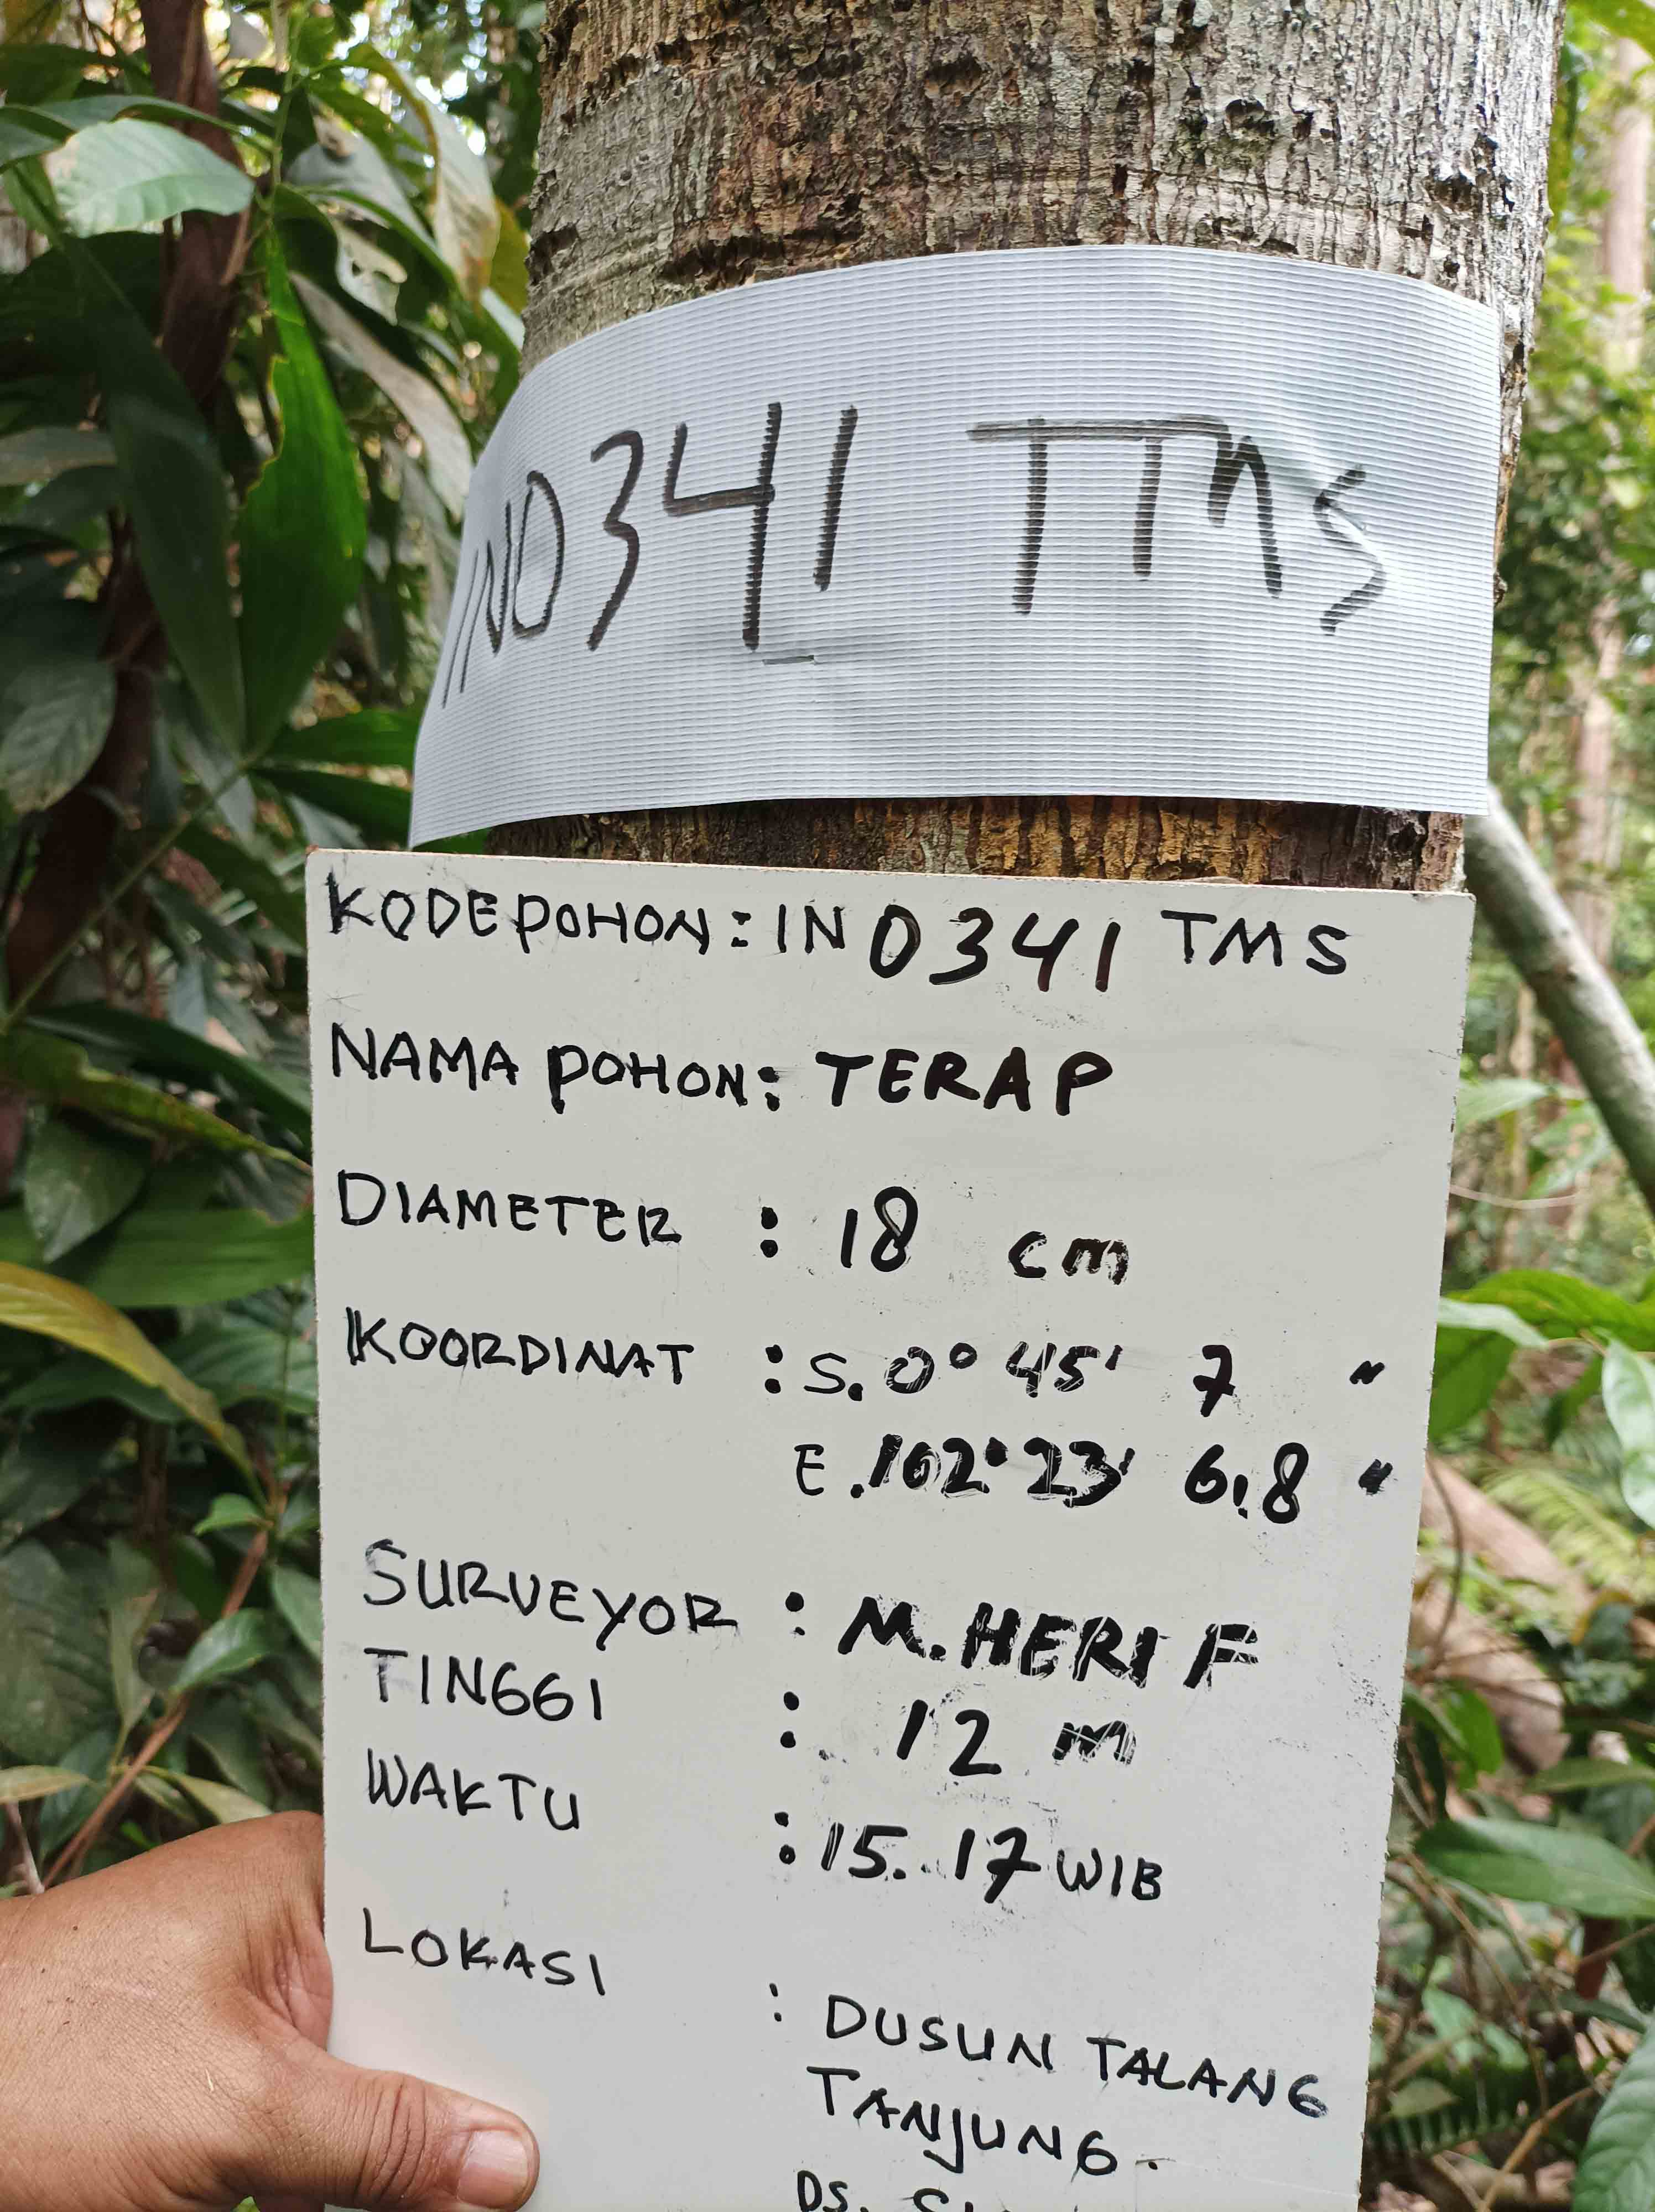 IN0341 TMS
KODE POHON : IN 0341 TMS
NAMA POHON : TERAP
DIAMETER : 18 cm
KOORDINAT : S. 0° 45' 7 "
E. 102° 23' 6,8 "
SURVEYOR : M. HERI F
TINGGI : 12 m
WAKTU : 15.17 WIB
LOKASI : DUSUN TALANG
TANJUNG.
DS.